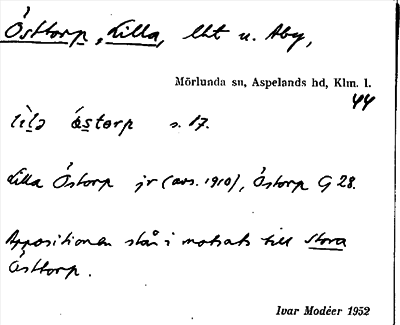 Östtorp, Lilla, lht u. Åby,
Mörlunda sn, Aspelands hd, Klm. l.
44
lìlə ǻstərp s. 17.
Lilla Östorp jr (avs. 1910), Östorp G 28.
Appositionen står i motsats till Stora
Östtorp.
Ivar Modéer 1952